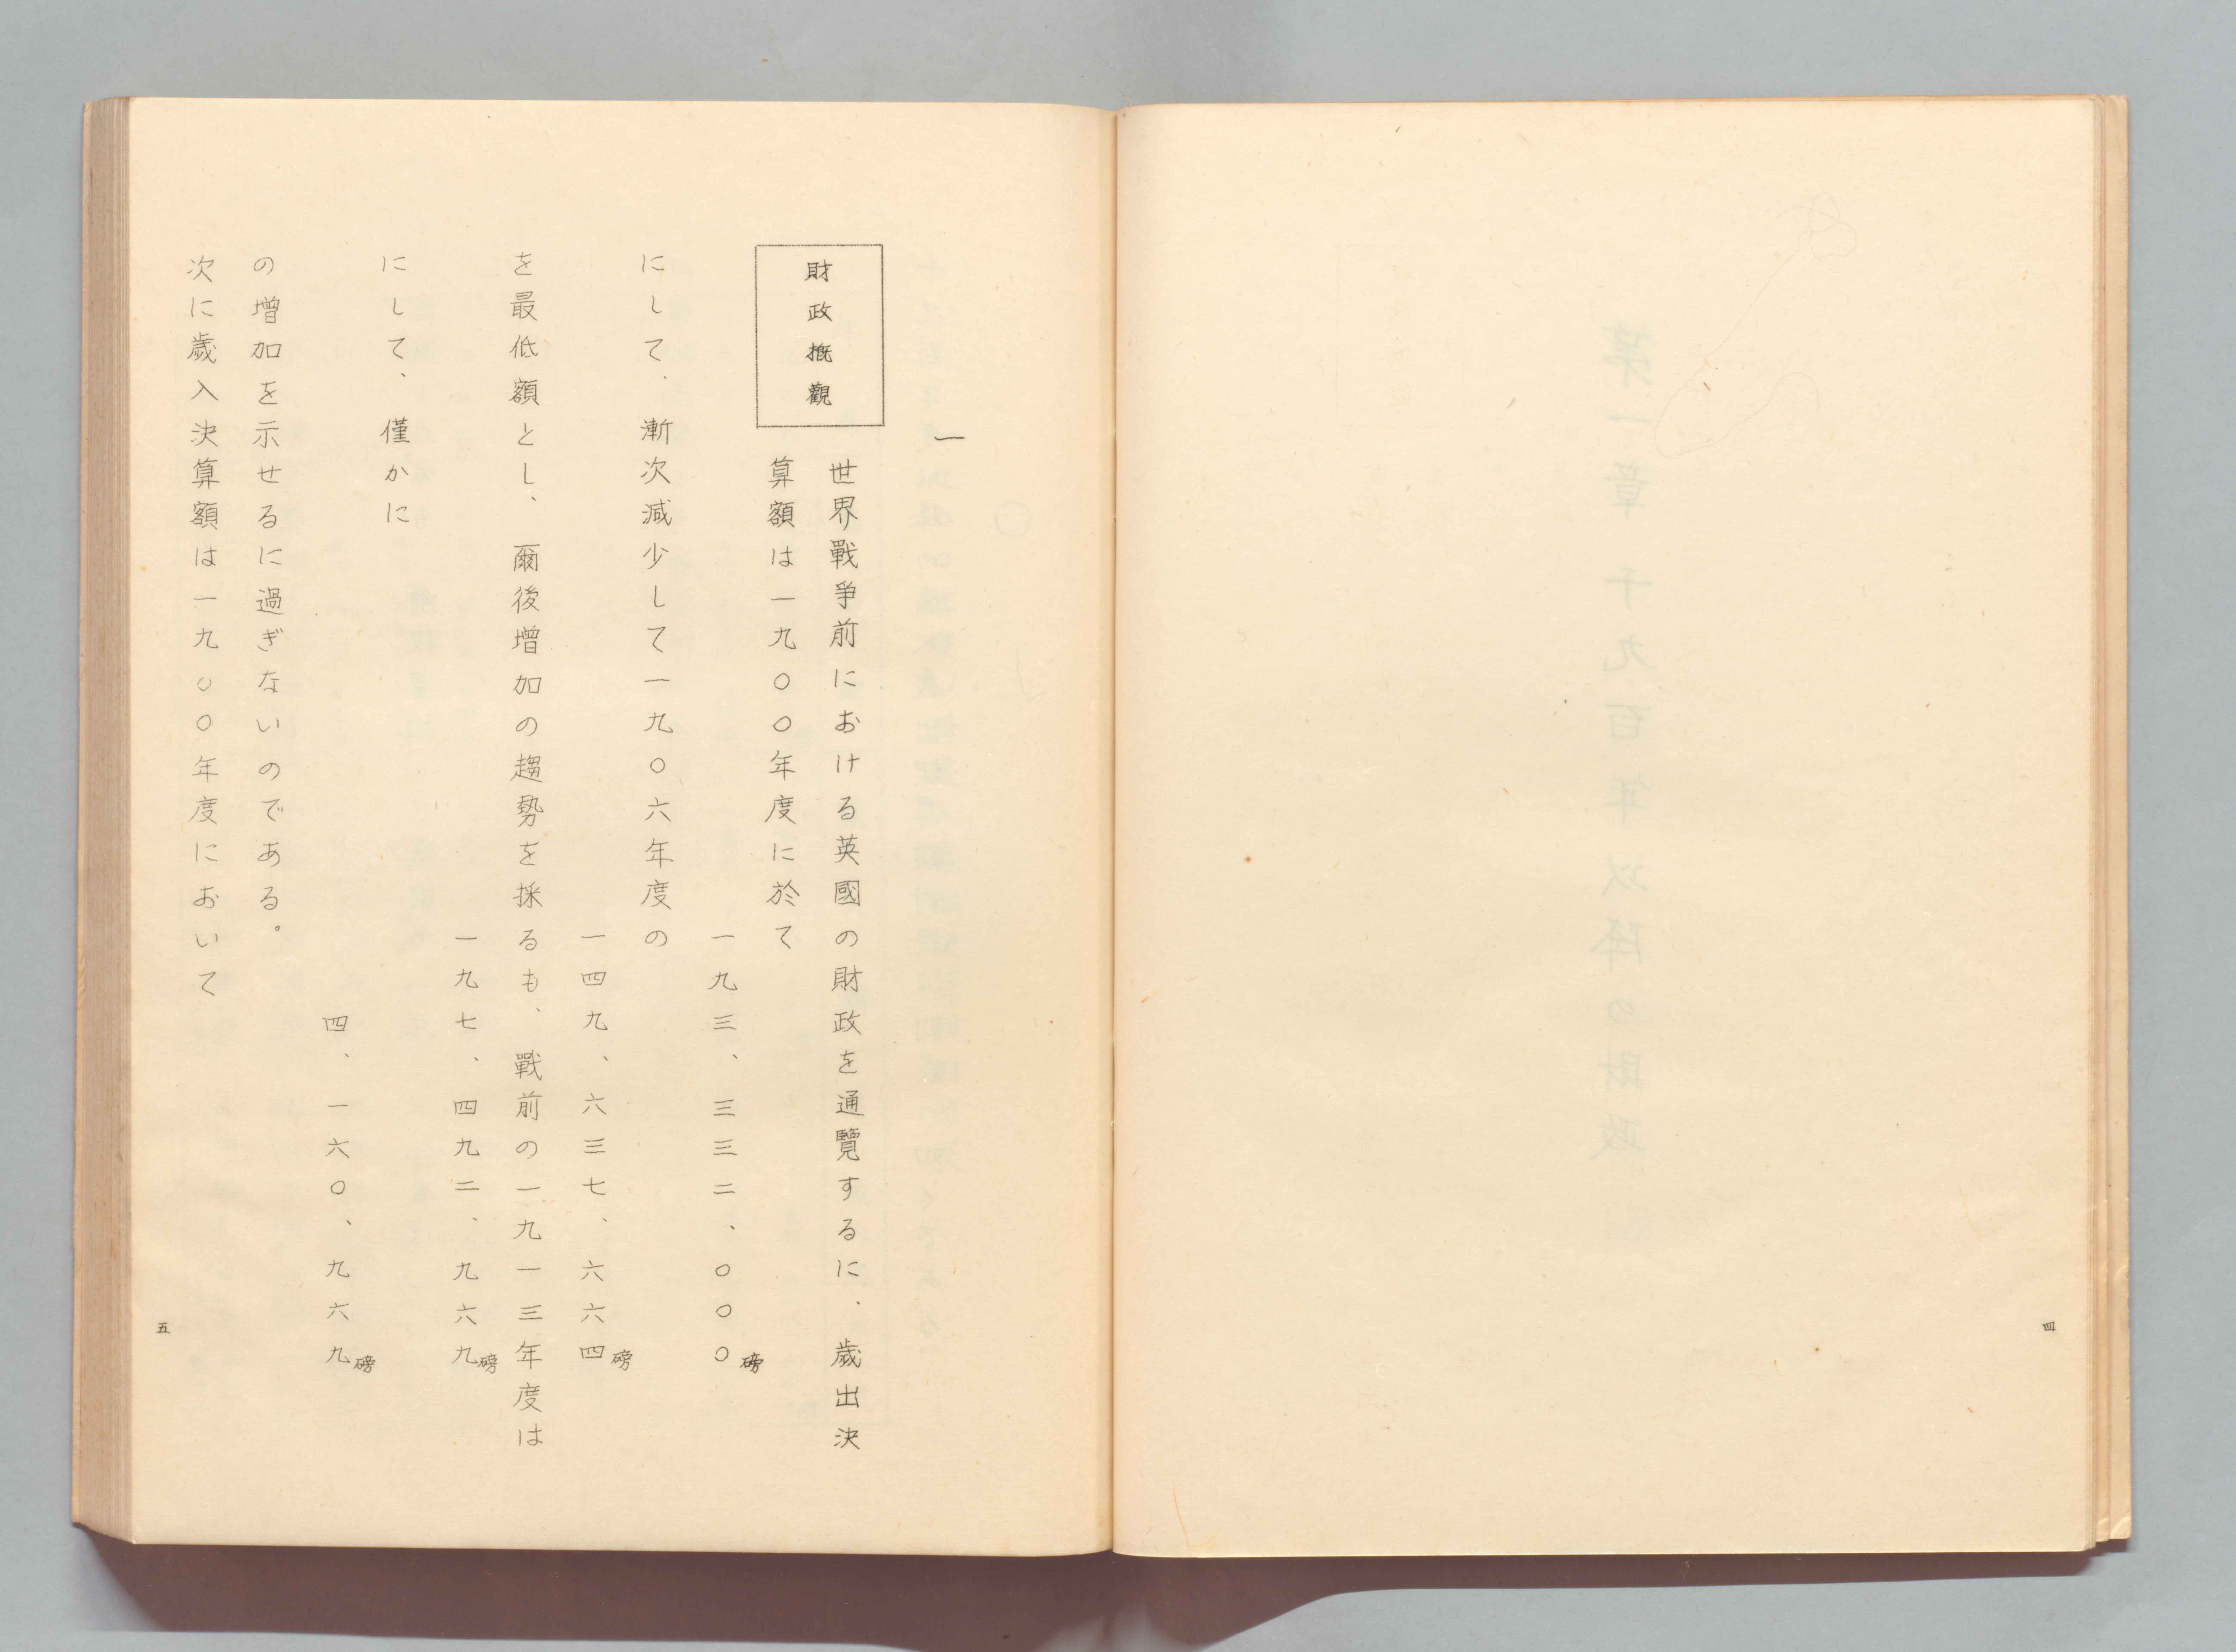 四
一
財政概觀
世界戰争前における英國の財政を通覽するに、歲出決
算額は一九〇〇年度に於て
一九三、三三二、〇〇〇磅
にして、漸次減少して一九〇六年度の
一四九、六三七、六六四磅
を最低額とし、爾後增加の趨勢を採るも、戰前の一九一三年度は
一九七、四九二、九六九磅
にして、僅かに
四、一六〇、九六九磅
の增加を示せるに過ぎないのである。
次に歲入決算額は一九〇〇年度において
五